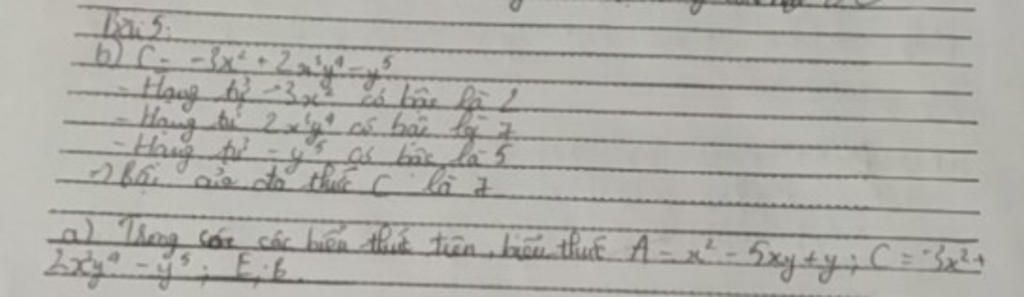 Bài 5:
b) C = -3x² + 2x³y⁴ - y⁵
- Hạng tử -3x² có bậc là 2
- Hạng tử 2x³y⁴ có bậc là 7
- Hạng tử - y⁵ có bậc là 5
→ Bậc của đa thức C là 7
a) Trong các các biểu thức trên, biểu thức A = x² - 5xy + y; C = -3x² +
2x³y⁴ - y⁵; E;